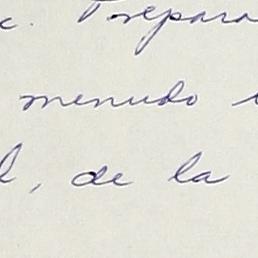 Prepara
menudo
, de la